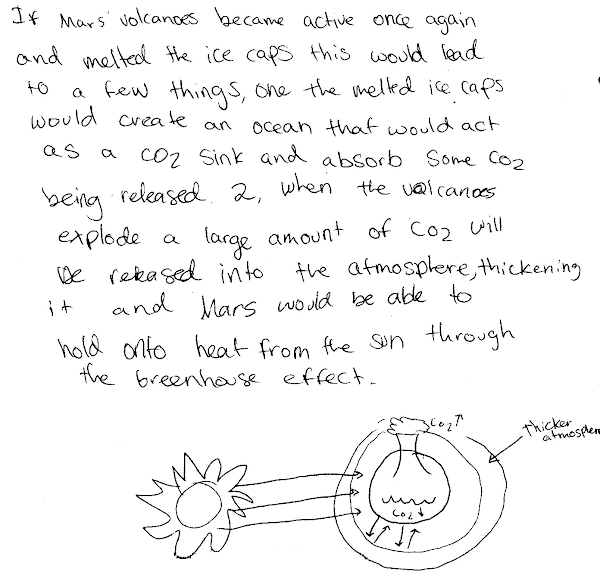 If Mars' volcanoes became active once again
and melted the ice caps this would lead
to a few things, one the melted ice caps
would create an ocean that would act
as a CO2 sink and absorb some CO2
being released. 2, when the volcanoes
explode a large amount of CO2 will
be released into the atmosphere, thickening
it and Mars would be able to
hold onto heat from the sun through
the greenhouse effect.
CO2↑
thicker
atmosphere
CO2↓